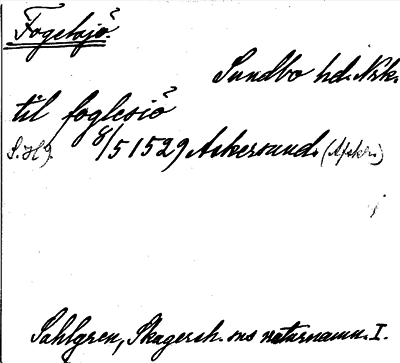 Fogelsjö?
Sundbo hd. Nrk.
til foglesiö?
S. H 9. 8/5 1529 Askersund. (Afskr.)
Sahlgren, Skagersh. sns naturnamn. I.